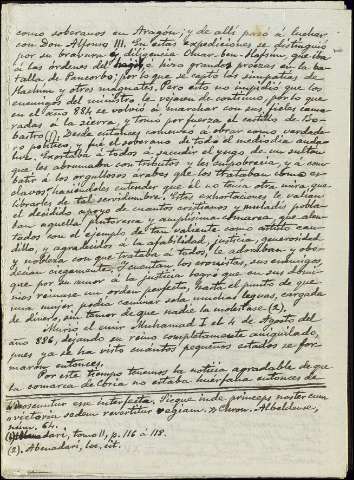 como soberanos en Aragón; y de allí pasó á luchar
con Don Alfonso III. En estas expediciones se distinguió
por su bravura y diligencia Omar ben Hafsun, que iba
á las órdenes del hagib é hizo grandes proezas en la ba-
talla de Pancorbo; por lo que se captó las simpatías de
Hachim y otros magnates. Pero esto no impidió que los
enemigos del ministro le vejasen de continuo, por lo que
en el año 884 se volvió á marchar con sus fieles cama-
radas á la sierra, y tomó por fuerza el castillo de Bo-
bastro (1). Desde entonces comenzó á obrar como verdade-
ro político, y fué el soberano de todo el mediodía anda-
luz. Exhortaba á todos á sacudir el yugo de un sultán
que los abrumaba con tributos y les empobrecía, y á com-
batir á los orgullosos árabes que los trataban como es-
clavos; haciéndoles entender que él no tenía otra mira, que
librarles de tal servidumbre. Estas exhortaciones le valieron
el decidido apoyo de cuantos cristianos y muladíes pobla-
ban aquella pintoresca y amplísima comarca, que alen-
tados con el ejemplo de tan valiente como astuto cau-
dillo, y agradecidos á la afabilidad, justicia, generosidad
y nobleza con que trataba á todos, le adoraban y obe-
decían ciegamente. Y cuentan los cronistas, sus enemigos,
que por su amor á la justicia logró que en sus domi-
nios reinase un orden perfecto, hasta el punto de que
una mujer podía caminar sola muchas leguas, cargada
de dinero, sin temor de que nadie la molestase (2).
Murió el emir Muhamad I el 4 de Agosto del
año 886, dejando su reino completamente aniquilado,
pues ya se ha visto cuántos pequeños estados se for-
maron entonces.
Por este tiempo tenemos la noticia agradable de que
la comarca de Coria no estaba huérfana entonces de
prosequitur esse interfecta. Sicque inde princeps noster cum
victoria sedem revertitur regiam.» Chron. Albeldense,
núm. 64.
(1) Abenadari, tomo II, p. 116 á 118.
(2). Abenadari, loc. cit.